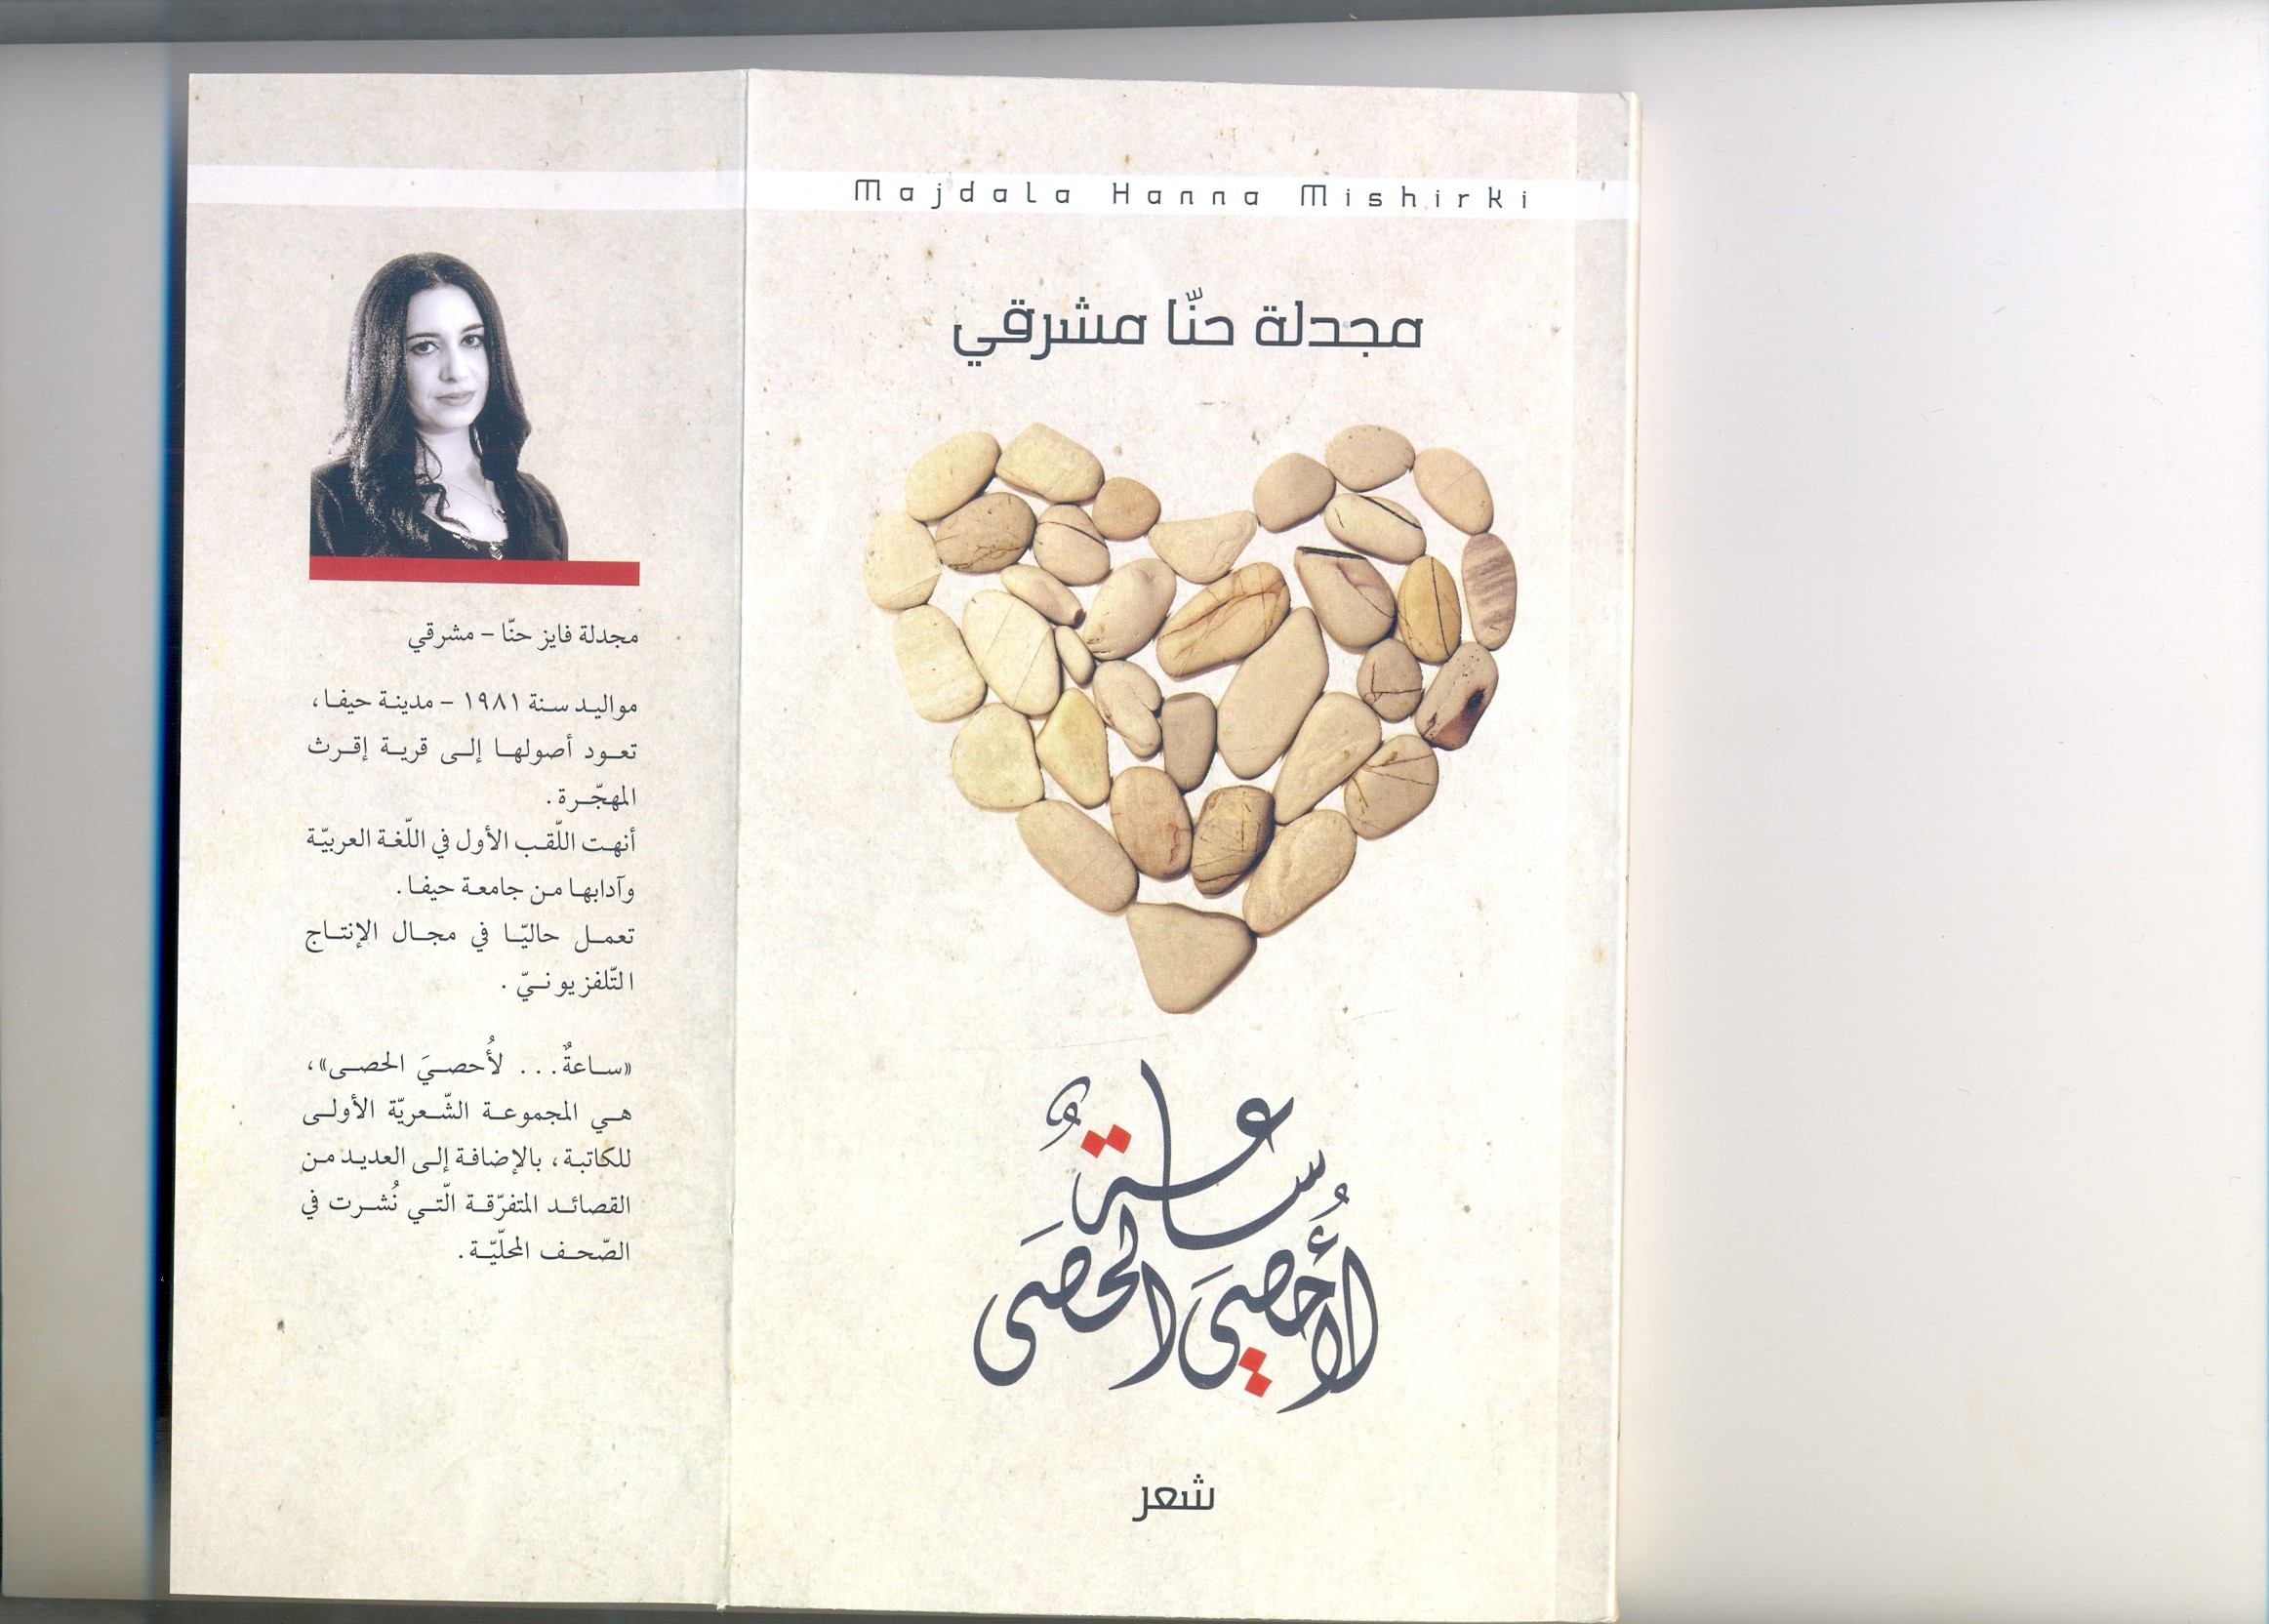 Majdala Hanna Mishirki
مجدلة حنّا مشرقي
ساعةٌ
لأُحصيَ الحصَى
شعر
مجدلة فايز حنّا - مشرقي
مواليد سنة ١٩٨١ - مدينة حيفا،
تعود أصولها إلى قرية إقرث
المهجّرة.
أنهت اللّقب الأول في اللّغة العربيّة
وآدابها من جامعة حيفا.
تعمل حاليّا في مجال الإنتاج
التّلفزيونيّ.
«ساعةٌ... لأُحصيَ الحصى»،
هي المجموعة الشّعريّة الأولى
للكاتبة، بالإضافة إلى العديد من
القصائد المتفرّقة الّتي نُشرت في
الصّحف المحلّيّة.